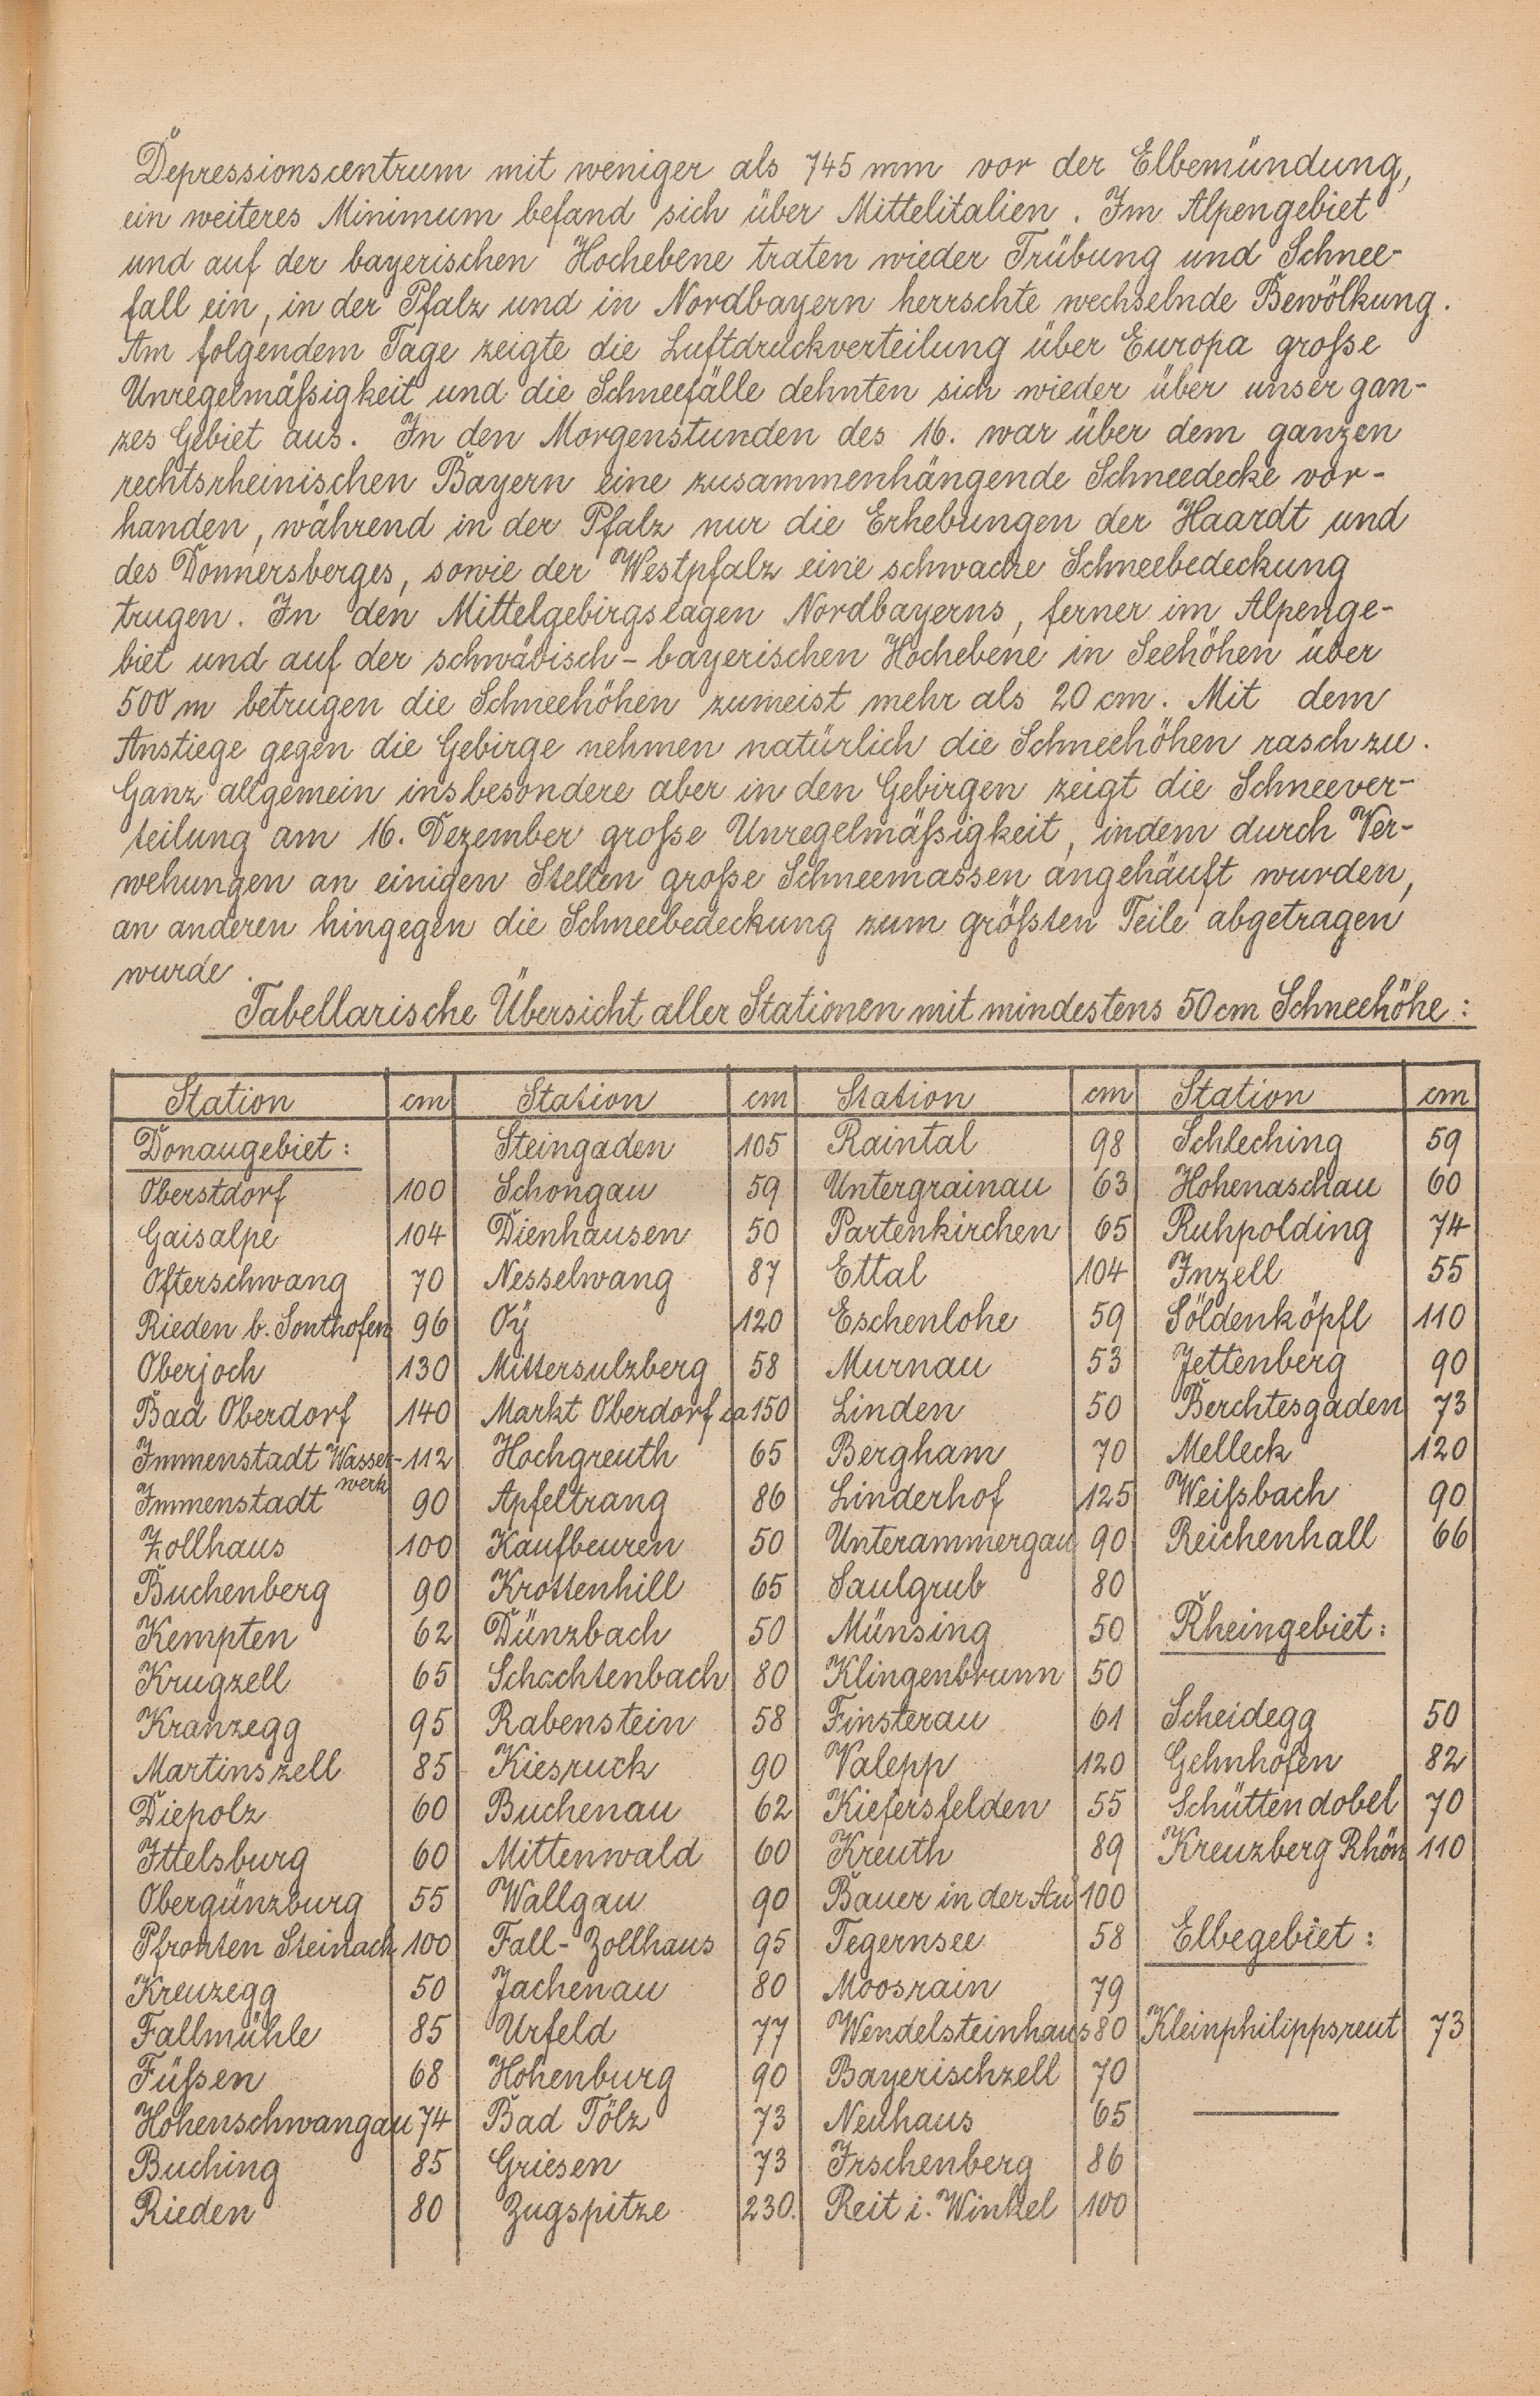 Depressionscentrum mit weniger als 745 mm vor der Elbemündung,
ein weiteres Minimum befand sich über Mittelitalien. Im Alpengebiet
und auf der bayerischen Hochebene traten wieder Trübung und Schnee-
fall ein, in der Pfalz und in Nordbayern herrschte wechselnde Bewölkung.
Am folgendem Tage zeigte die Luftdruckverteilung über Europa große
Unregelmäßigkeit und die Schneefälle dehnten sich wieder über unser gan-
zes Gebiet aus. In den Morgenstunden des 16. war über dem ganzen
rechtsrheinischen Bayern eine zusammenhängende Schneedecke vor-
handen, während in der Pfalz nur die Erhebungen der Haardt und
des Donnersberges, sowie der Westpfalz eine schwache Schneebedeckung
trugen. In den Mittelgebirgslagen Nordbayerns, ferner im Alpenge-
biet und auf der schwäbisch-bayerischen Hochebene in Seehöhen über
500 m betrugen die Schneehöhen zumeist mehr als 20 cm. Mit dem
Anstiege gegen die Gebirge nehmen natürlich die Schneehöhen rasch zu.
Ganz allgemein insbesondere aber in den Gebirgen zeigt die Schneever-
teilung am 16. Dezember große Unregelmäßigkeit, indem durch Ver-
wehungen an einigen Stellen große Schneemassen angehäuft wurden,
an anderen hingegen die Schneebedeckung zum größten Teile abgetragen
wurde.
Tabellarische Übersicht aller Stationen mit mindestens 50 cm Schneehöhe:
Station cm Station cm Station cm Station cm
Donaugebiet: Steingaden 105 Raintal 98 Schleching 59
Oberstdorf 100 Schongau 59 Untergrainau 63 Hohenaschau 60
Gaisalpe 104 Dienhausen 50 Partenkirchen 65 Ruhpolding 74
Ofterschwang 70 Nesselwang 87 Ettal 104 Inzell 55
Rieden b. Sonthofen 96 Oÿ 120 Eschenlohe 59 Söldenköpfl 110
Oberjoch 130 Mittersulzberg 58 Murnau 53 Jettenberg 90
Bad Oberdorf 140 Markt Oberdorf ca 150 Linden 50 Berchtesgaden 73
Immenstadt Wasser- 112 Hochgreuth 65 Bergham 70 Melleck 120
werk
Immenstadt 90 Apfeltrang 86 Linderhof 125 Weißbach 90
Zollhaus 100 Kaufbeuren 50 Unterammergau 90 Reichenhall 66
Buchenberg 90 Krottenhill 65 Saulgrub 80
Kempten 62 Dünzbach 50 Münsing 50 Rheingebiet:
Krugzell 65 Schachtenbach 80 Klingenbrunn 50
Kranzegg 95 Rabenstein 58 Finsterau 61 Scheidegg 50
Martinszell 85 Kiesruck 90 Valepp 120 Gehnhofen 82
Diepolz 60 Buchenau 62 Kiefersfelden 55 Schüttendobel 70
Ittelsburg 60 Mittenwald 60 Kreuth 89 Kreuzberg Rhön 110
Obergünzburg 55 Wallgau 90 Bauer in der Au 100
Pfronten Steinach 100 Fall-Zollhaus 95 Tegernsee 58 Elbegebiet:
Kreuzegg 50 Jachenau 80 Moosrain 79
Fallmühle 85 Urfeld 77 Wendelsteinhaus 80 Kleinphilippsreut 73
Füßen 68 Hohenburg 90 Bayerischzell 70
Hohenschwangau 74 Bad Tölz 73 Neuhaus 65
Buching 85 Griesen 73 Irschenberg 86
Rieden 80 Zugspitze 230. Reit i. Winkel 100